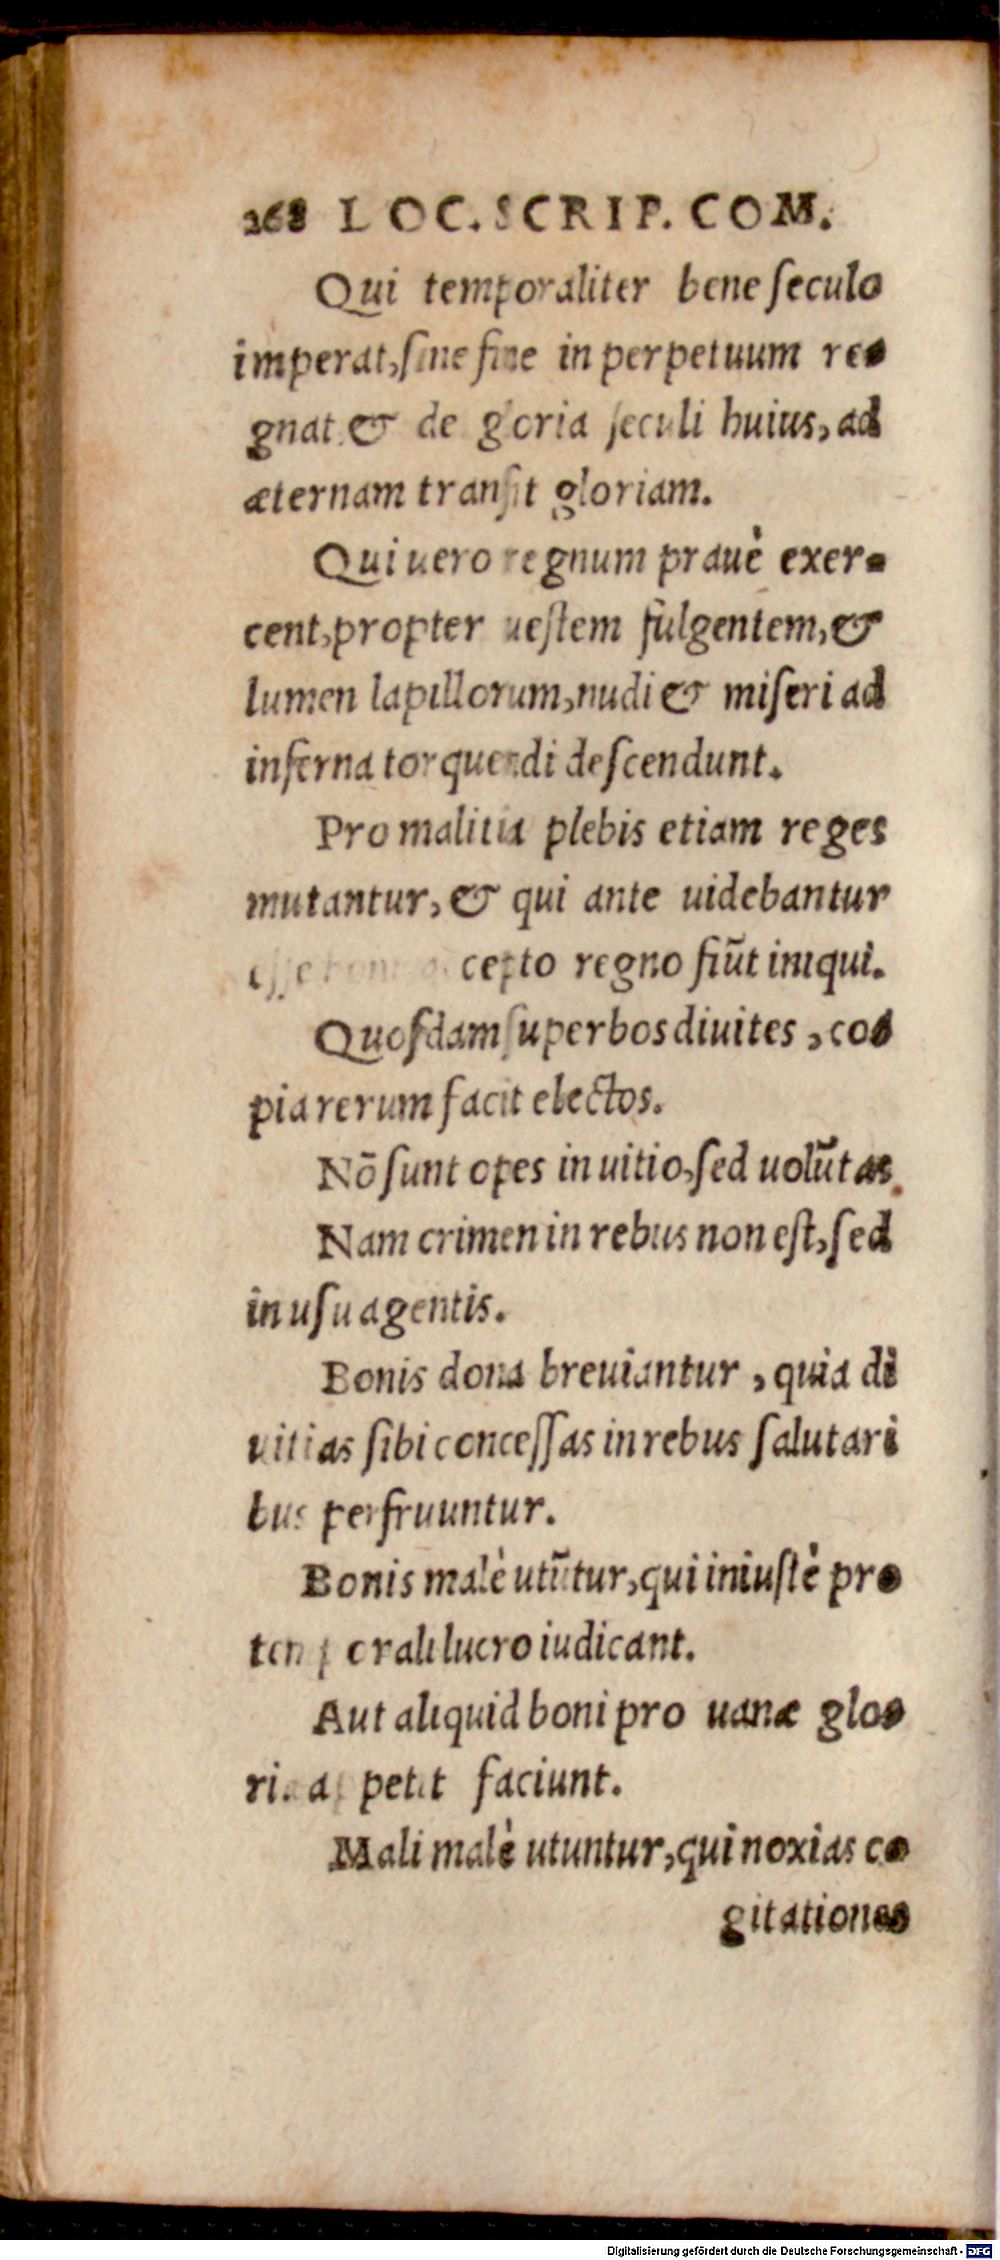 268 LOC. SCRIP. COM.
Qui temporaliter bene seculo
imperat, sine fine in perpetuum re-
gnat & de gloria seculi huius, ad
æternam transit gloriam.
Qui uero regnum prauè exer-
cent, propter uestem fulgentem, &
lumen lapillorum, nudi & miseri ad
inferna torquendi descendunt.
Pro malitia plebis etiam reges
mutantur, & qui ante uidebantur
esse cepto regno fiũt iniqui.
Quosdam superbos diuites, co-
pia rerum facit electos.
Nõ sunt opes in uitio, sed uolũtas
Nam crimen in rebus non est, sed
in usu agentis.
Bonis dona breuiantur, quia di
uitias sibi concessas in rebus salutari
bus perfruuntur.
Bonis malè utũtur, qui iniustè pro
temporali lucro iudicant.
Aut aliquid boni pro uanæ glo-
riæ appetit faciunt.
Mali malè utuntur, qui noxias co
gitationes
Digitalisierung gefördert durch die Deutsche Forschungsgemeinschaft - DFG